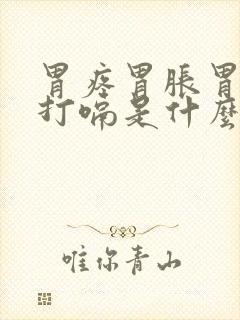 胃疼胃胀胃
打嗝是什麼
唯你青山